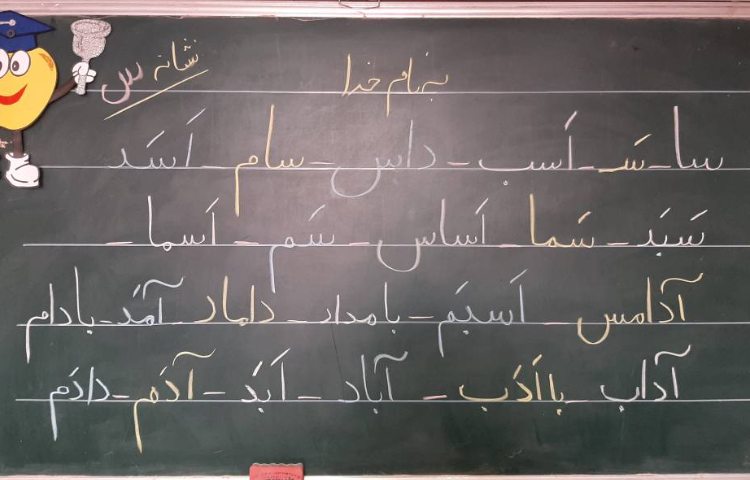 به نام خدا
نشانه س
سا - سَـ - اَسب - داس - سام - اَسَد
سَبَد - سَما - اَساس - سَم - اَسما -
آدامس - اَسبَم - بامداد - داماد - آمَد - بادام
آداب - بااَدَب - آباد - اَبَد - آدَم - دادَم